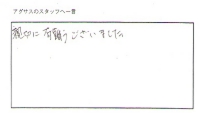 アグサスのスタッフへ一言
親切に有難うございました